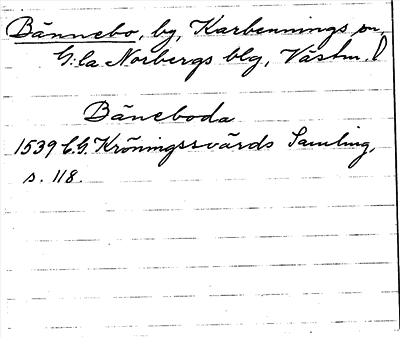 Bännebo, by, Karbennings sn,
G:la Norbergs blg, Västm.
Bäneboda
1539 C.G. Kröningssvärds Samling,
s. 118.